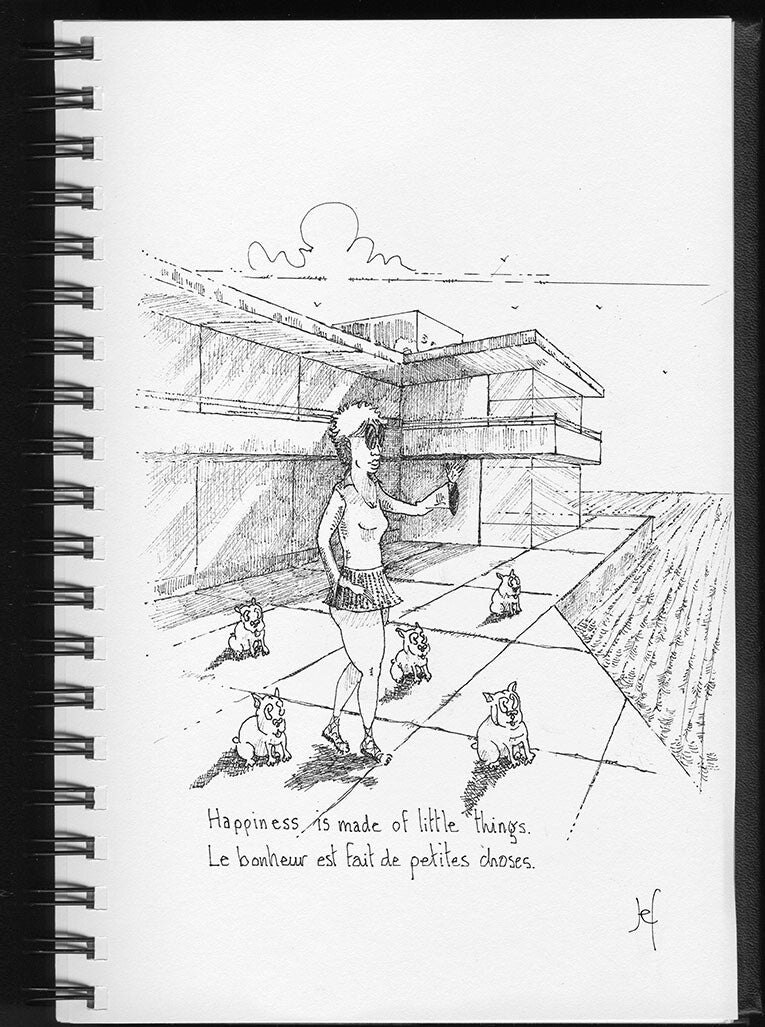 Happiness is made of little things.
Le bonheur est fait de petites choses.
Jef